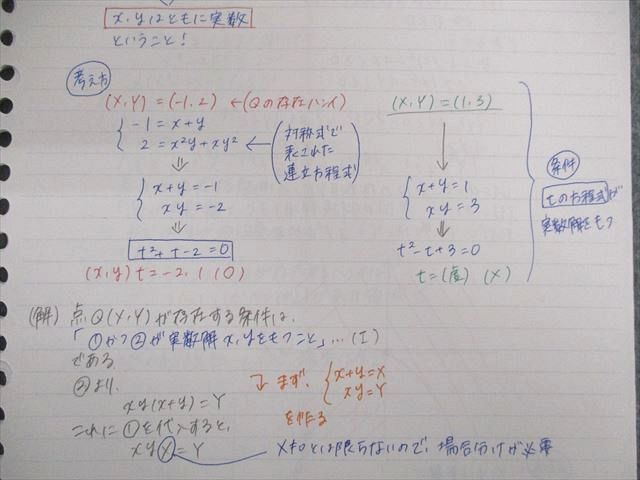 x,yはともに実数
ということ!
考え方
(X,Y)=(-1,2) ←(Qの存在ハンイ)
-1=x+y
2=x²y+xy²
対称式で
表された
連立方程式
x+y=-1
xy=-2
t²+t-2=0
(x,y) t=-2,1 (○)
(X,Y)=(1,3)
x+y=1
xy=3
t²-t+3=0
t=(虚) (×)
条件
tの方程式が
実数解をもつ
(解) 点Q(X,Y)が存在する条件は、
「①かつ②が実数解x,yをもつこと」…(I)
である
②より、
xy(x+y)=Y
これに①を代入すると、
xyX=Y
まず、
x+y=X
xy=Y
を作る
X≠0とは限らないので、場合分けが必要